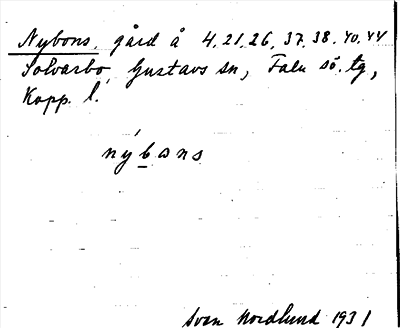 Nybons, gård å 4, 21, 26, 37, 38, 40, 44
Solvarbo, Gustavs sn, Falu sö. tg,
Kopp. l.
nýbons
Sven Nordlund 1931